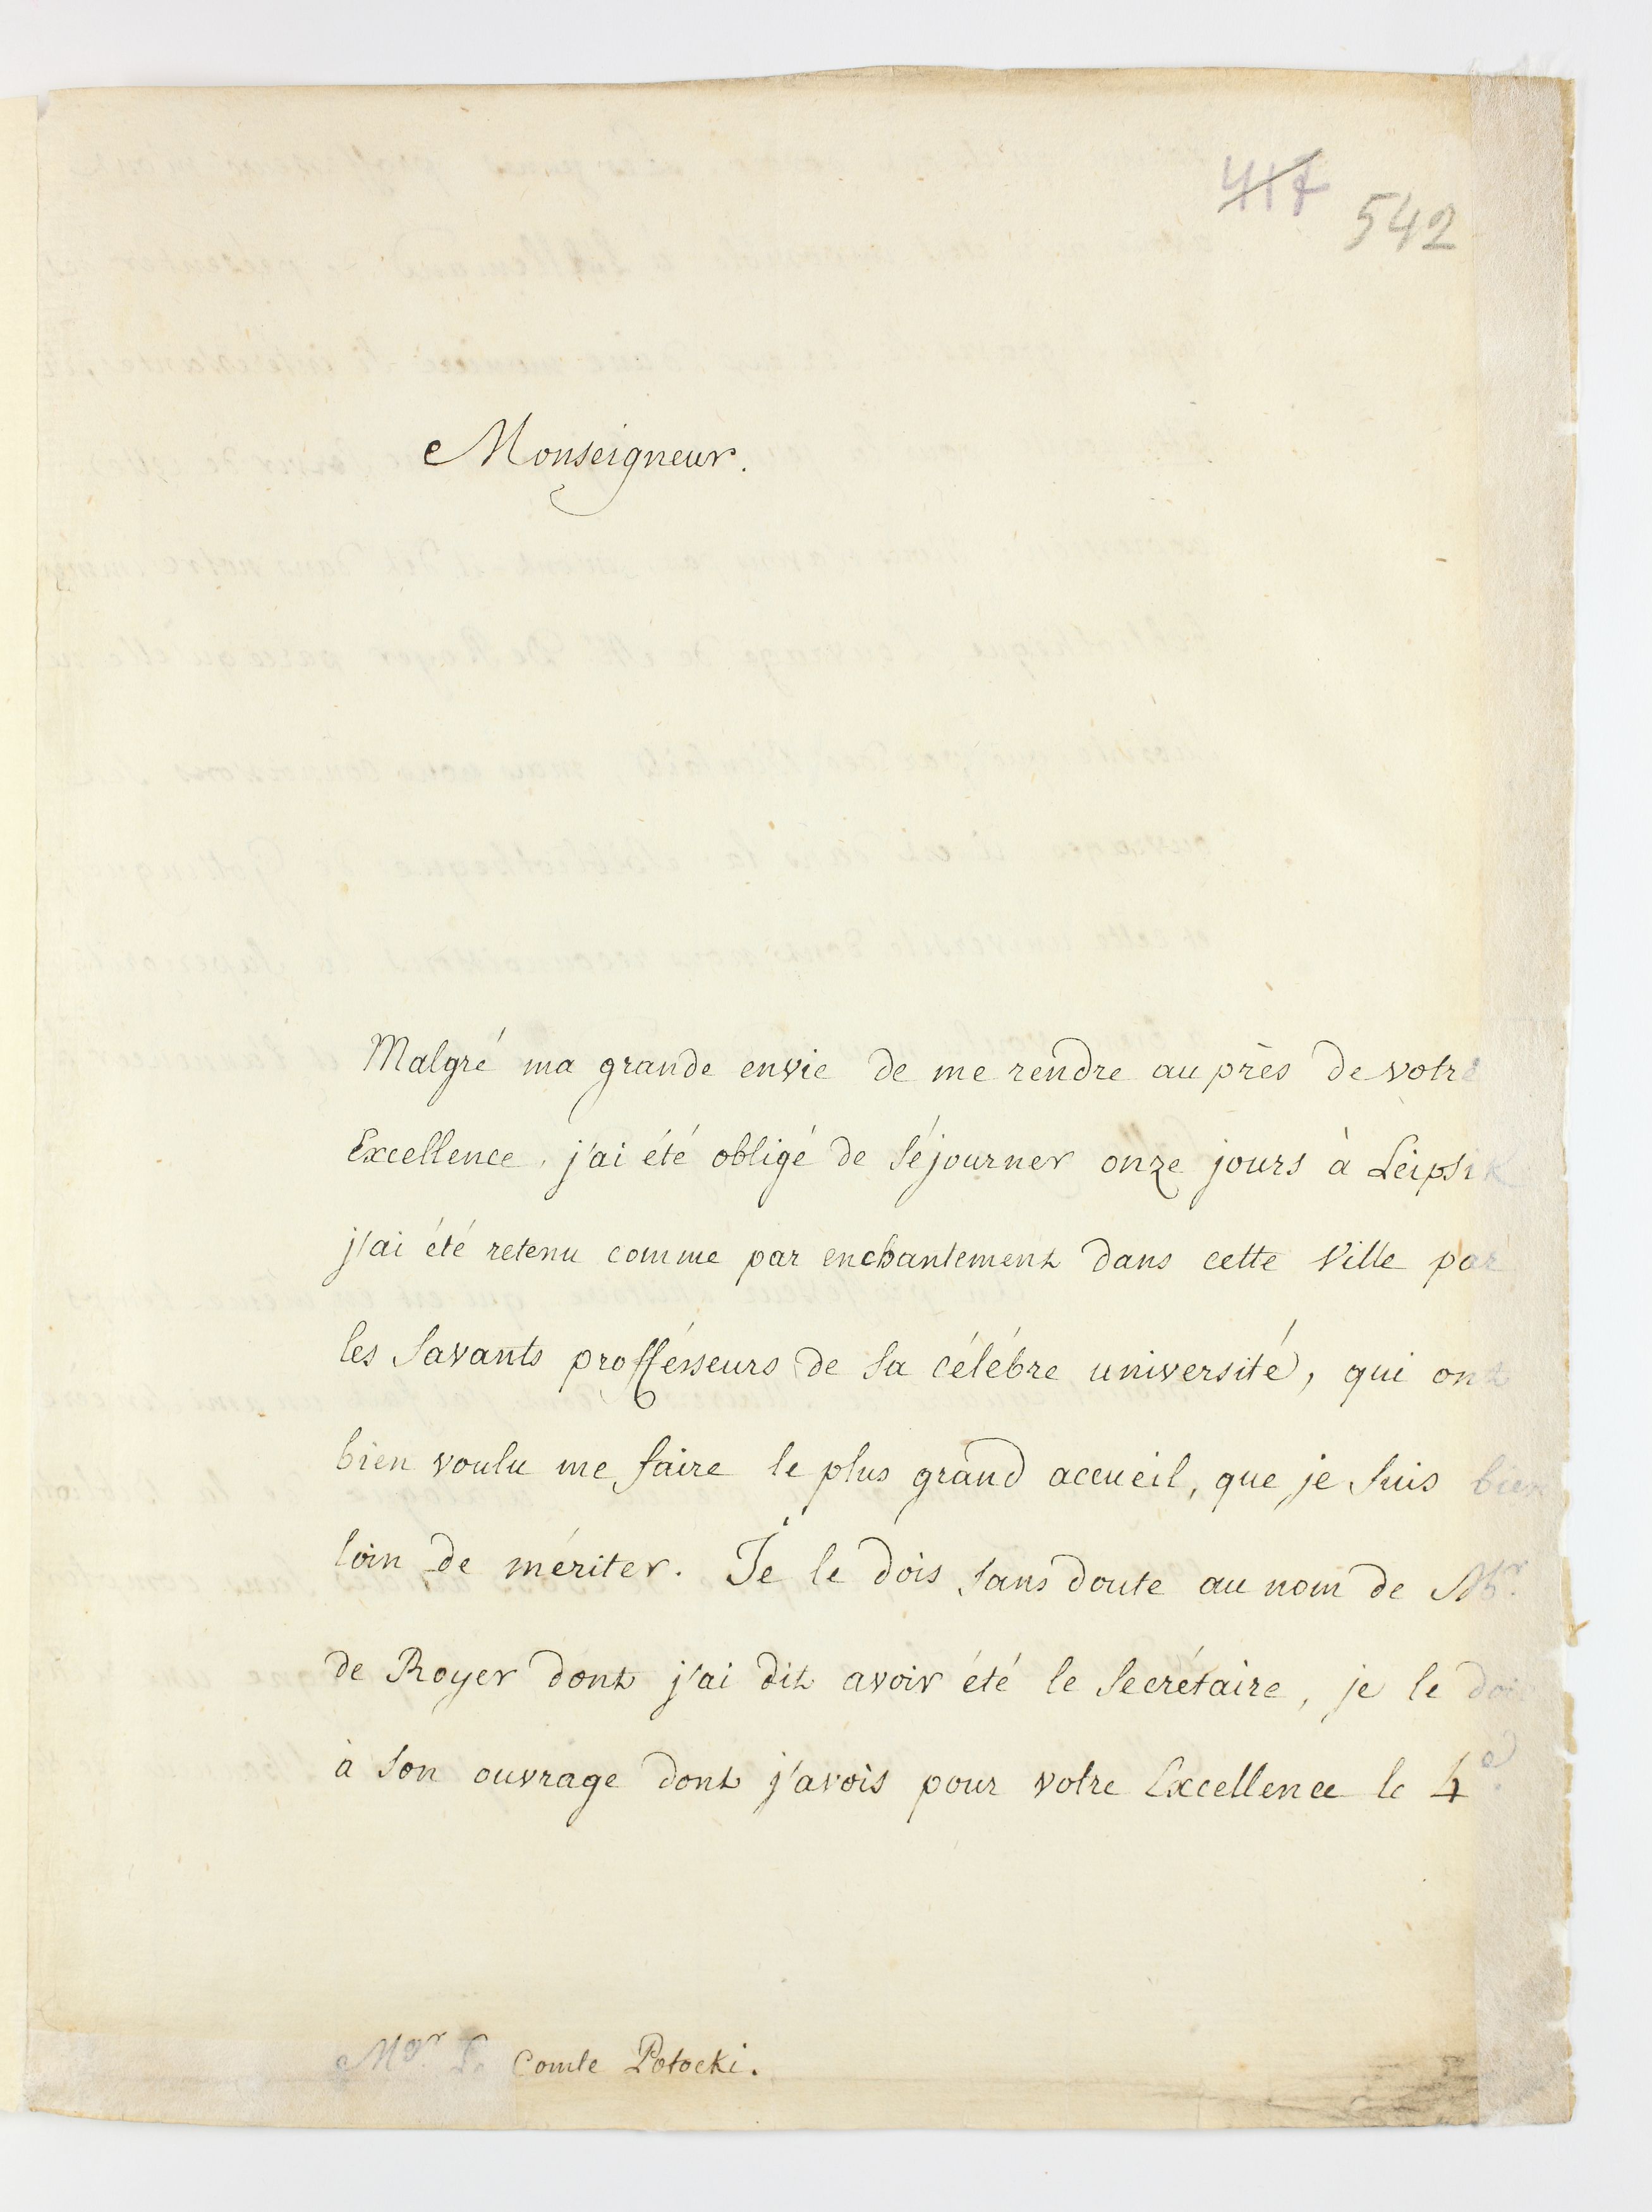 417 542
Monseigneur.
Malgré ma grande envie de me rendre au près de votre
Excellence, j'ai été obligé de séjourner onze jours à Leipsik
j'ai été retenu comme par enchantement dans cette Ville par
les savants proffésseurs de sa célébre université, qui ont
bien voulu me faire le plus grand accueil, que je suis bien
loin de mériter. Je le dois sans doute au nom de Mr.
de Royer dont j'ai dit avoir été le secrétaire, je le dois
à son ouvrage dont j'avois pour votre Excellence le 4e.
Mgr. Le Comte Potocki.